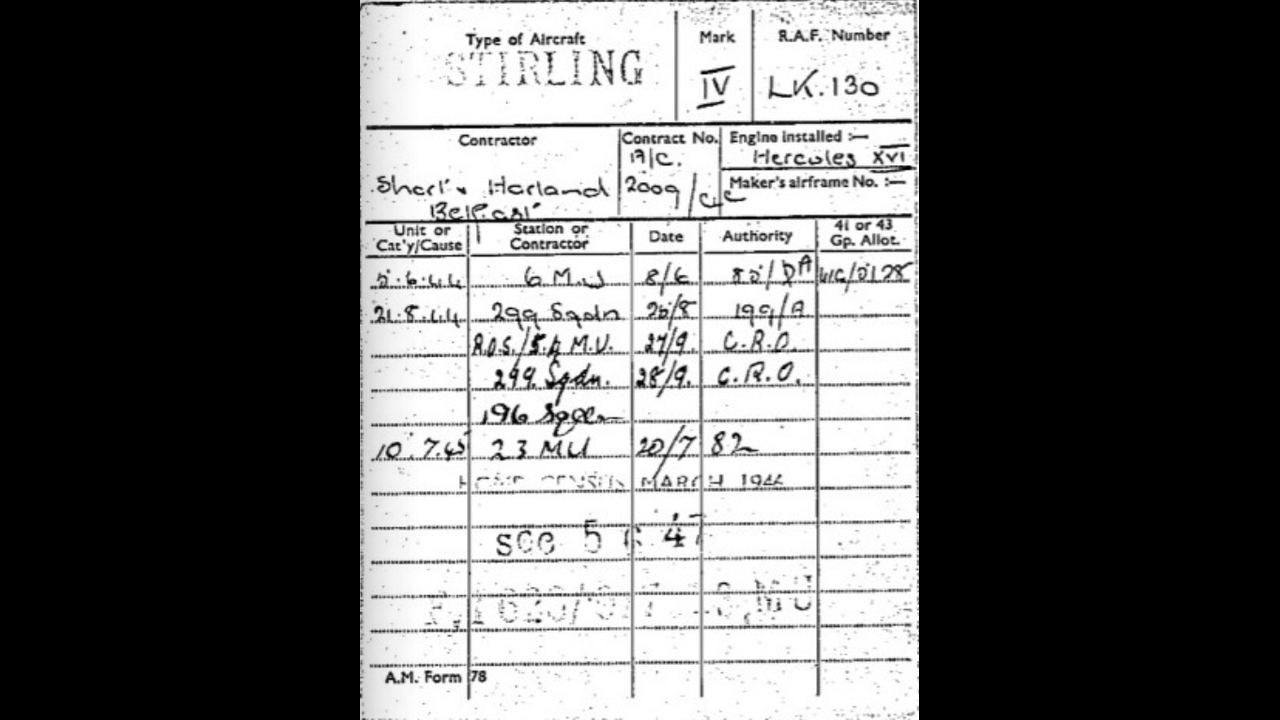 Type of Aircraft Mark R.A.F. Number
STIRLING IV LK.130
Contractor Contract No. Engine installed :—
A/C. Hercules XVI
Short & Harland 2009 Maker's airframe No. :—
Belfast
Unit or Cat'y/Cause Station or Contractor Date Authority 41 or 43 Gp. Allot.
5.6.44 6 M.U 8/6
21.8.44 299 Sqdn 199/A
R.O.S./ M.U. 27/9. C.R.O.
299 Sqdn. 28/9. C.R.O.
196 Sqdn
10.7.45 23 MU 20/7 82
HOME CENSUS MARCH 1946
soc 5 47
MU
A.M. Form 78